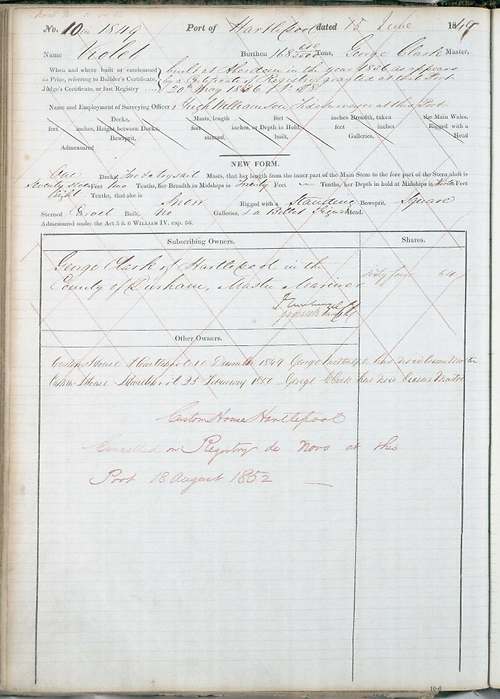 No. 10 in 1849 Port of Hartlepool dated 15 June 1849
Name Violet Burthen 168 Tons, George Clark Master,
When and where built or condemned
as Prize, referring to Builder's Certificate,
Judge's Certificate, or last Registry
built at Aberdeen in the year 1836 as appears
by a Certificate of Registry granted at that Port
20th May 1836 No. 18
Name and Employment of Surveying Officer Hugh Williamson Tidesurveyor at this Port
Decks, Masts, length feet inches Breadth, taken the Main Wales,
feet inches, Height between Decks, feet inches, or Depth in Hold, feet inches Rigged with a
Bowsprit, sterned, Built, Galleries, Head
Admeasured
NEW FORM.
One Decks, Two Masts, that her length from the inner part of the Main Stem to the fore part of the Stern aloft is
Seventy Feet Tenths, her Breadth in Midships is Twenty Feet Tenths, her Depth in hold at Midships is Feet
Eight Tenths, that she is Snow Rigged with a Standing Bowsprit, Square
Sterned Carvel Built, No Galleries, & a Head.
Admeasured under the Act 5 & 6 WILLIAM IV. cap. 56.
Subscribing Owners. Shares.
George Clark of Hartlepool in the
County of Durham, Master Mariner Sixty four 64
Other Owners.
Custom House Hartlepool 1849 George has now become Master
Custom House Hartlepool 25 February 1850 George Clark has now become Master
Custom House Hartlepool
Cancelled on Registry de Novo at this
Port 18 August 1852